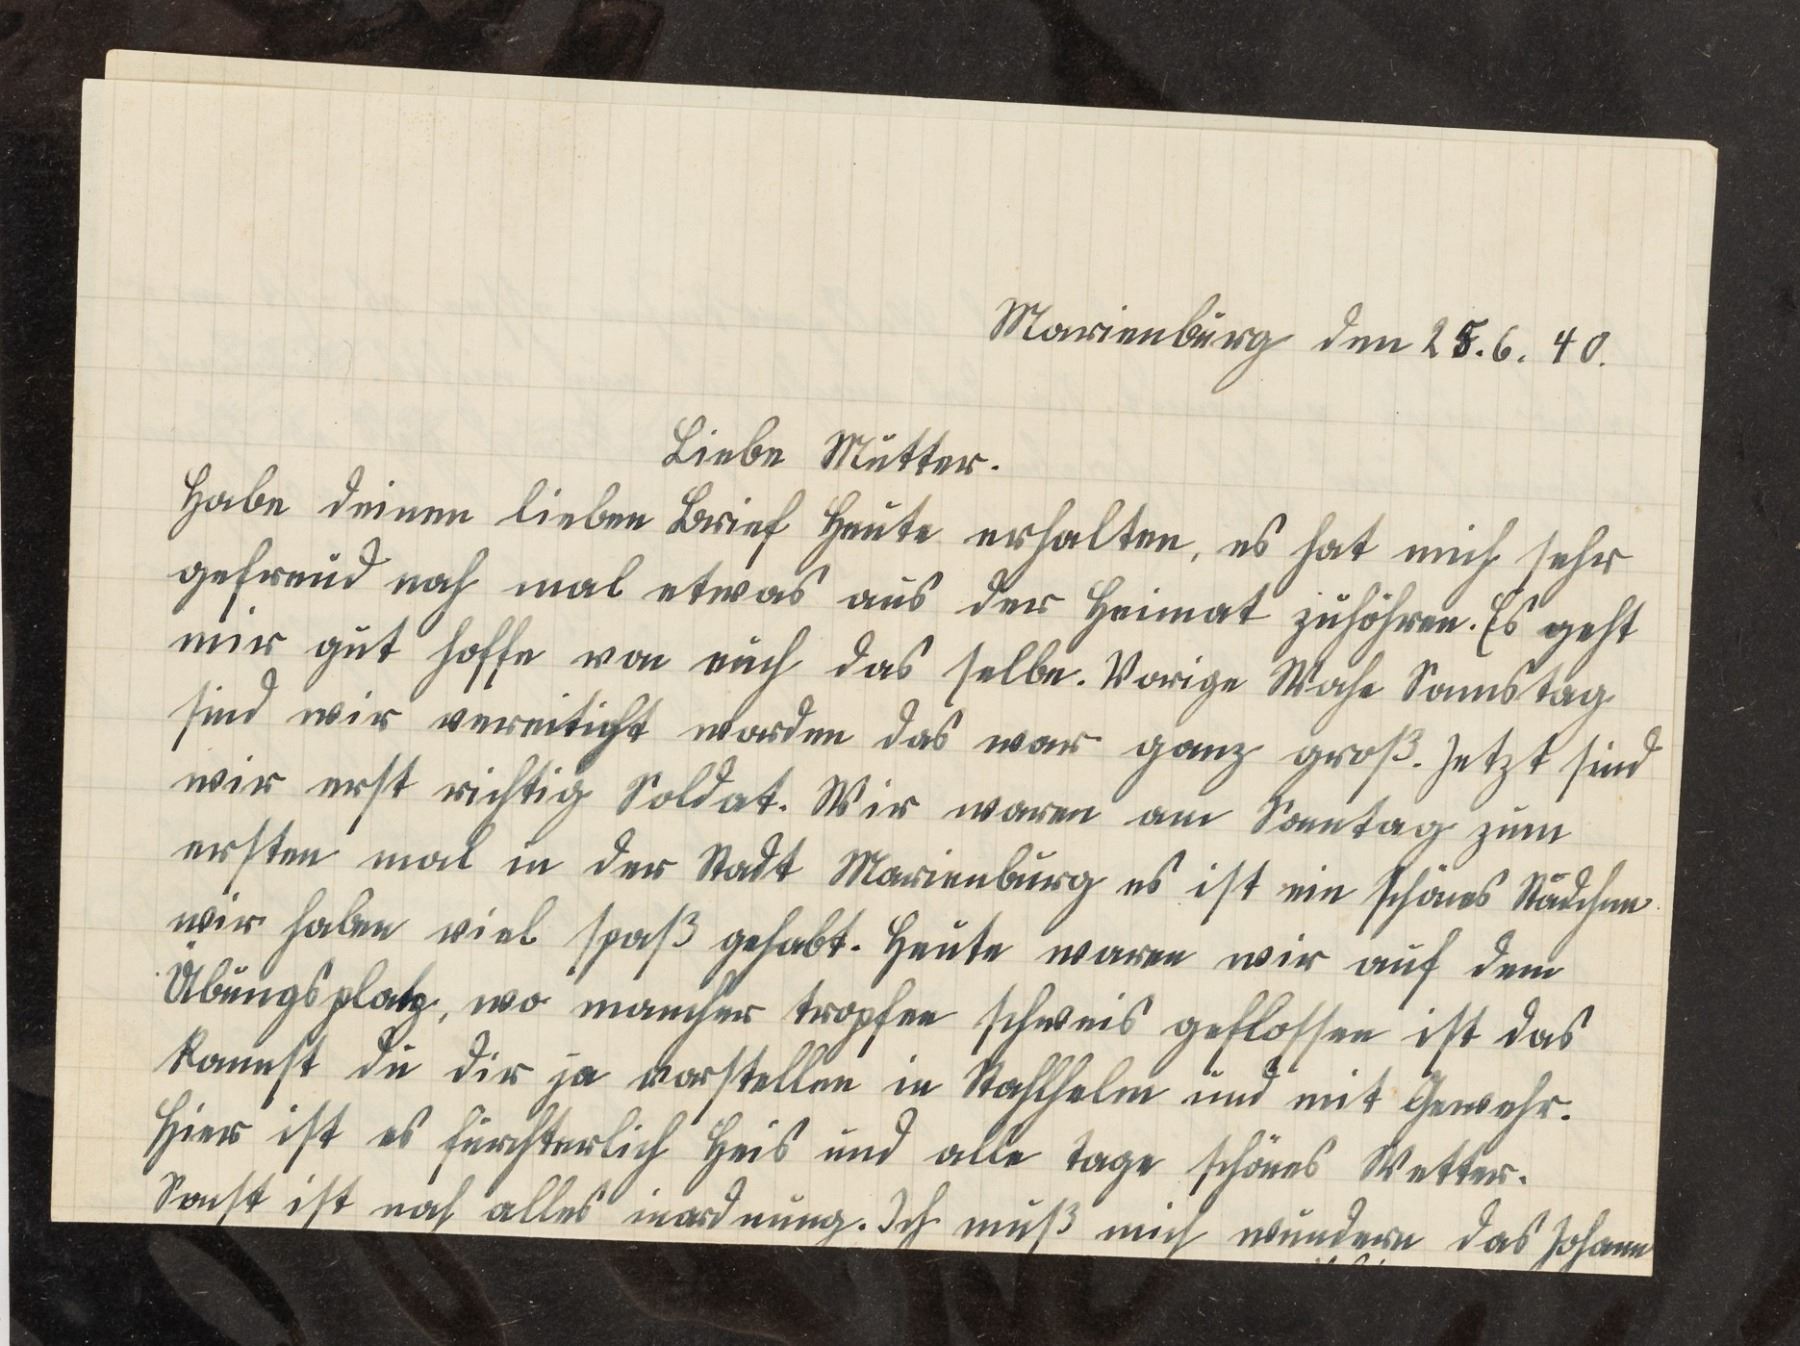 Marienburg den 25.6.40.
Liebe Mutter.
Habe deinen lieben Brief Heute erhalten, es hat mich sehr
gefreud noch mal etwas aus der Heimat zuhöhren. Es geht
mir gut hoffe von euch das selbe. Vorige Woche Samstag
sind wir vereiticht worden das war ganz groß. Jetzt sind
wir erst richtig Soldat. Wir waren am Sonntag zum
ersten mal in der Stadt Marienburg es ist ein schönes Städchen
wir haben viel spaß gehabt. Heute waren wir auf dem
Übungsplatz, wo mancher tropfen schweis geflossen ist das
kannst du dir ja vorstellen in Stahlhelm und mit Gewehr.
Hier ist es fürchterlich Heis und alle tage schönes Wetter.
Sonst ist noch alles inordnung. Ich muß mich wundern das Johann